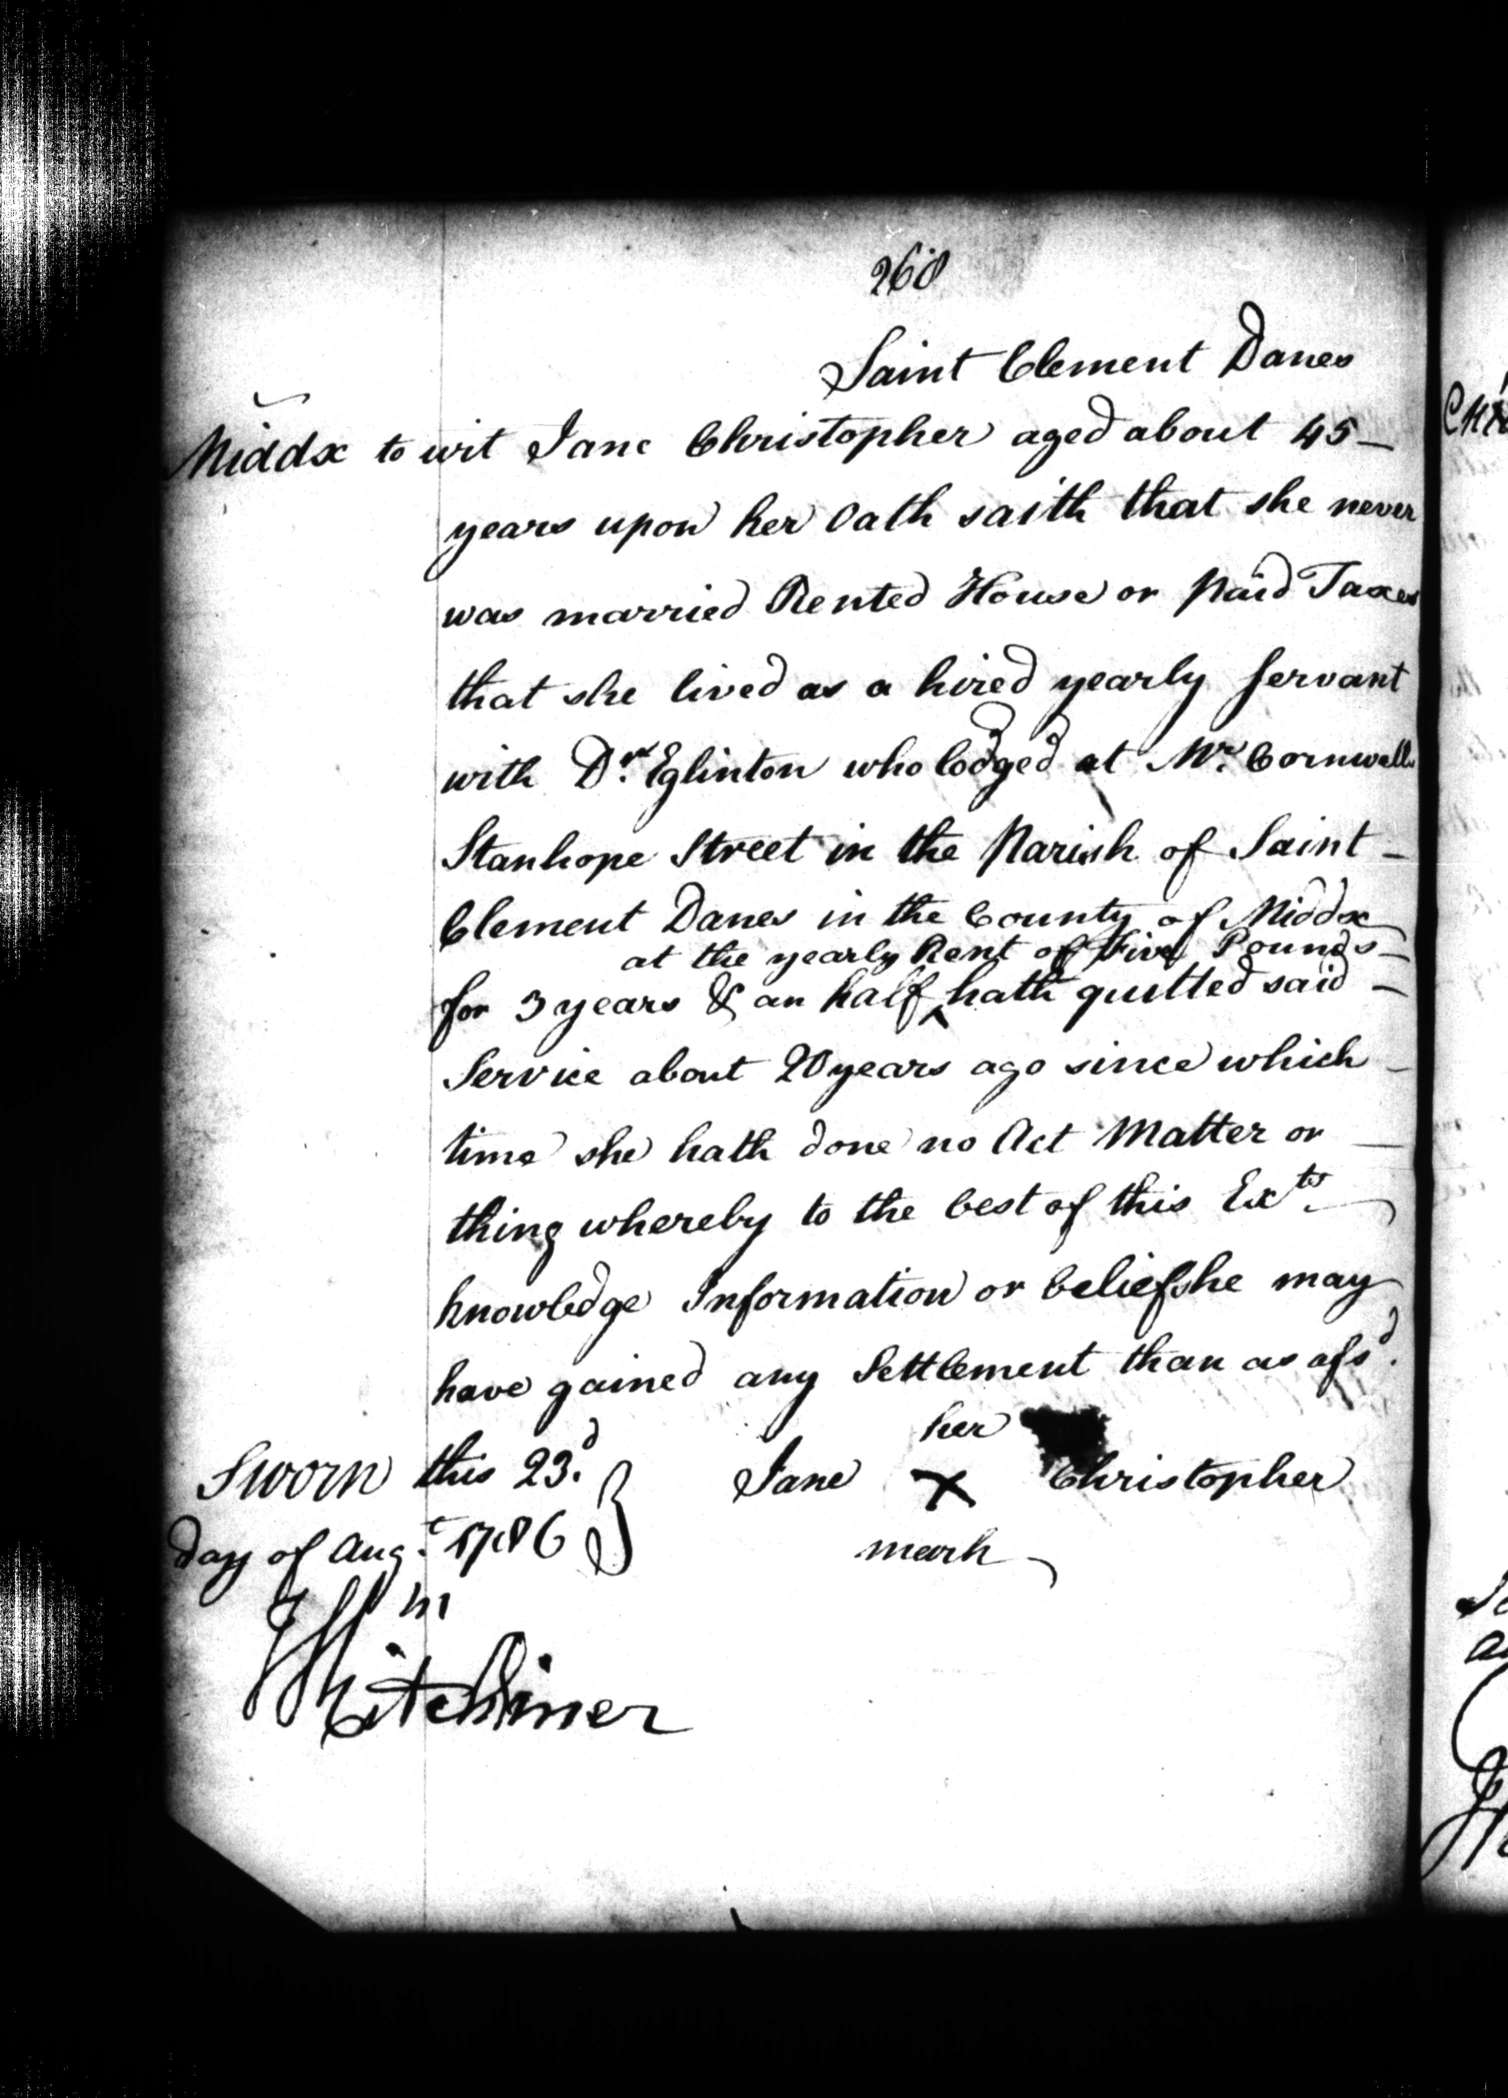 268
Saint Clement Danes
Middx to wit Jane Christopher aged about 45 –
years upon her Oath saith that she never
was married Rented House or paid Taxes
that she lived as a hired yearly servant
with Dr. Eglinton who lodged at Mr. Cornwalls
Stanhope Street in the Parish of Saint –
Clement Danes in the County of Middx
at the yearly Rent of Five Pounds –
for 3 years & an half ‸ hath quitted said –
Service about 20 years ago since which –
time she hath done no Act Matter or –
thing whereby to the best of this Exts
knowledge Information or belief she may
have gained any Settlement than as afsd.
her
Sworn this 23d. Jane X Christopher
day of Augt. 1786 mark
Wm
Hitchiner